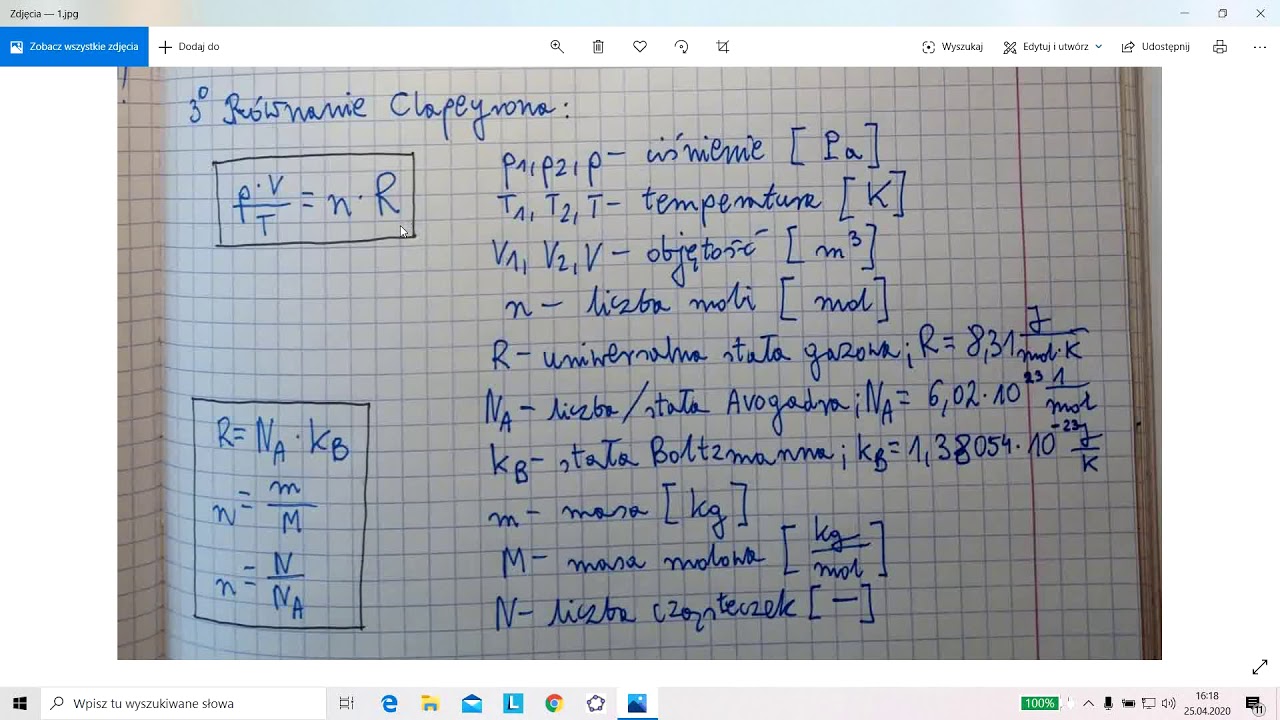 Zdjęcia — 1.jpg
Zobacz wszystkie zdjęcia
Dodaj do
Wyszukaj
Edytuj i utwórz
Udostępnij
3° Równanie Clapeyrona:
p·V/T = n·R
p1, p2, p – ciśnienie [Pa]
T1, T2, T – temperatura [K]
V1, V2, V – objętość [m³]
n – liczba moli [mol]
R – uniwersalna stała gazowa; R = 8,31 J/mol·K
NA – liczba/stała Avogadra; NA = 6,02·10²³ 1/mol
kB – stała Boltzmanna; kB = 1,38054·10⁻²³ J/K
m – masa [kg]
M – masa molowa [kg/mol]
N – liczba cząsteczek [–]
R = NA · kB
n = m/M
n = N/NA
Wpisz tu wyszukiwane słowa
100%
16:18
25.04.2020
11